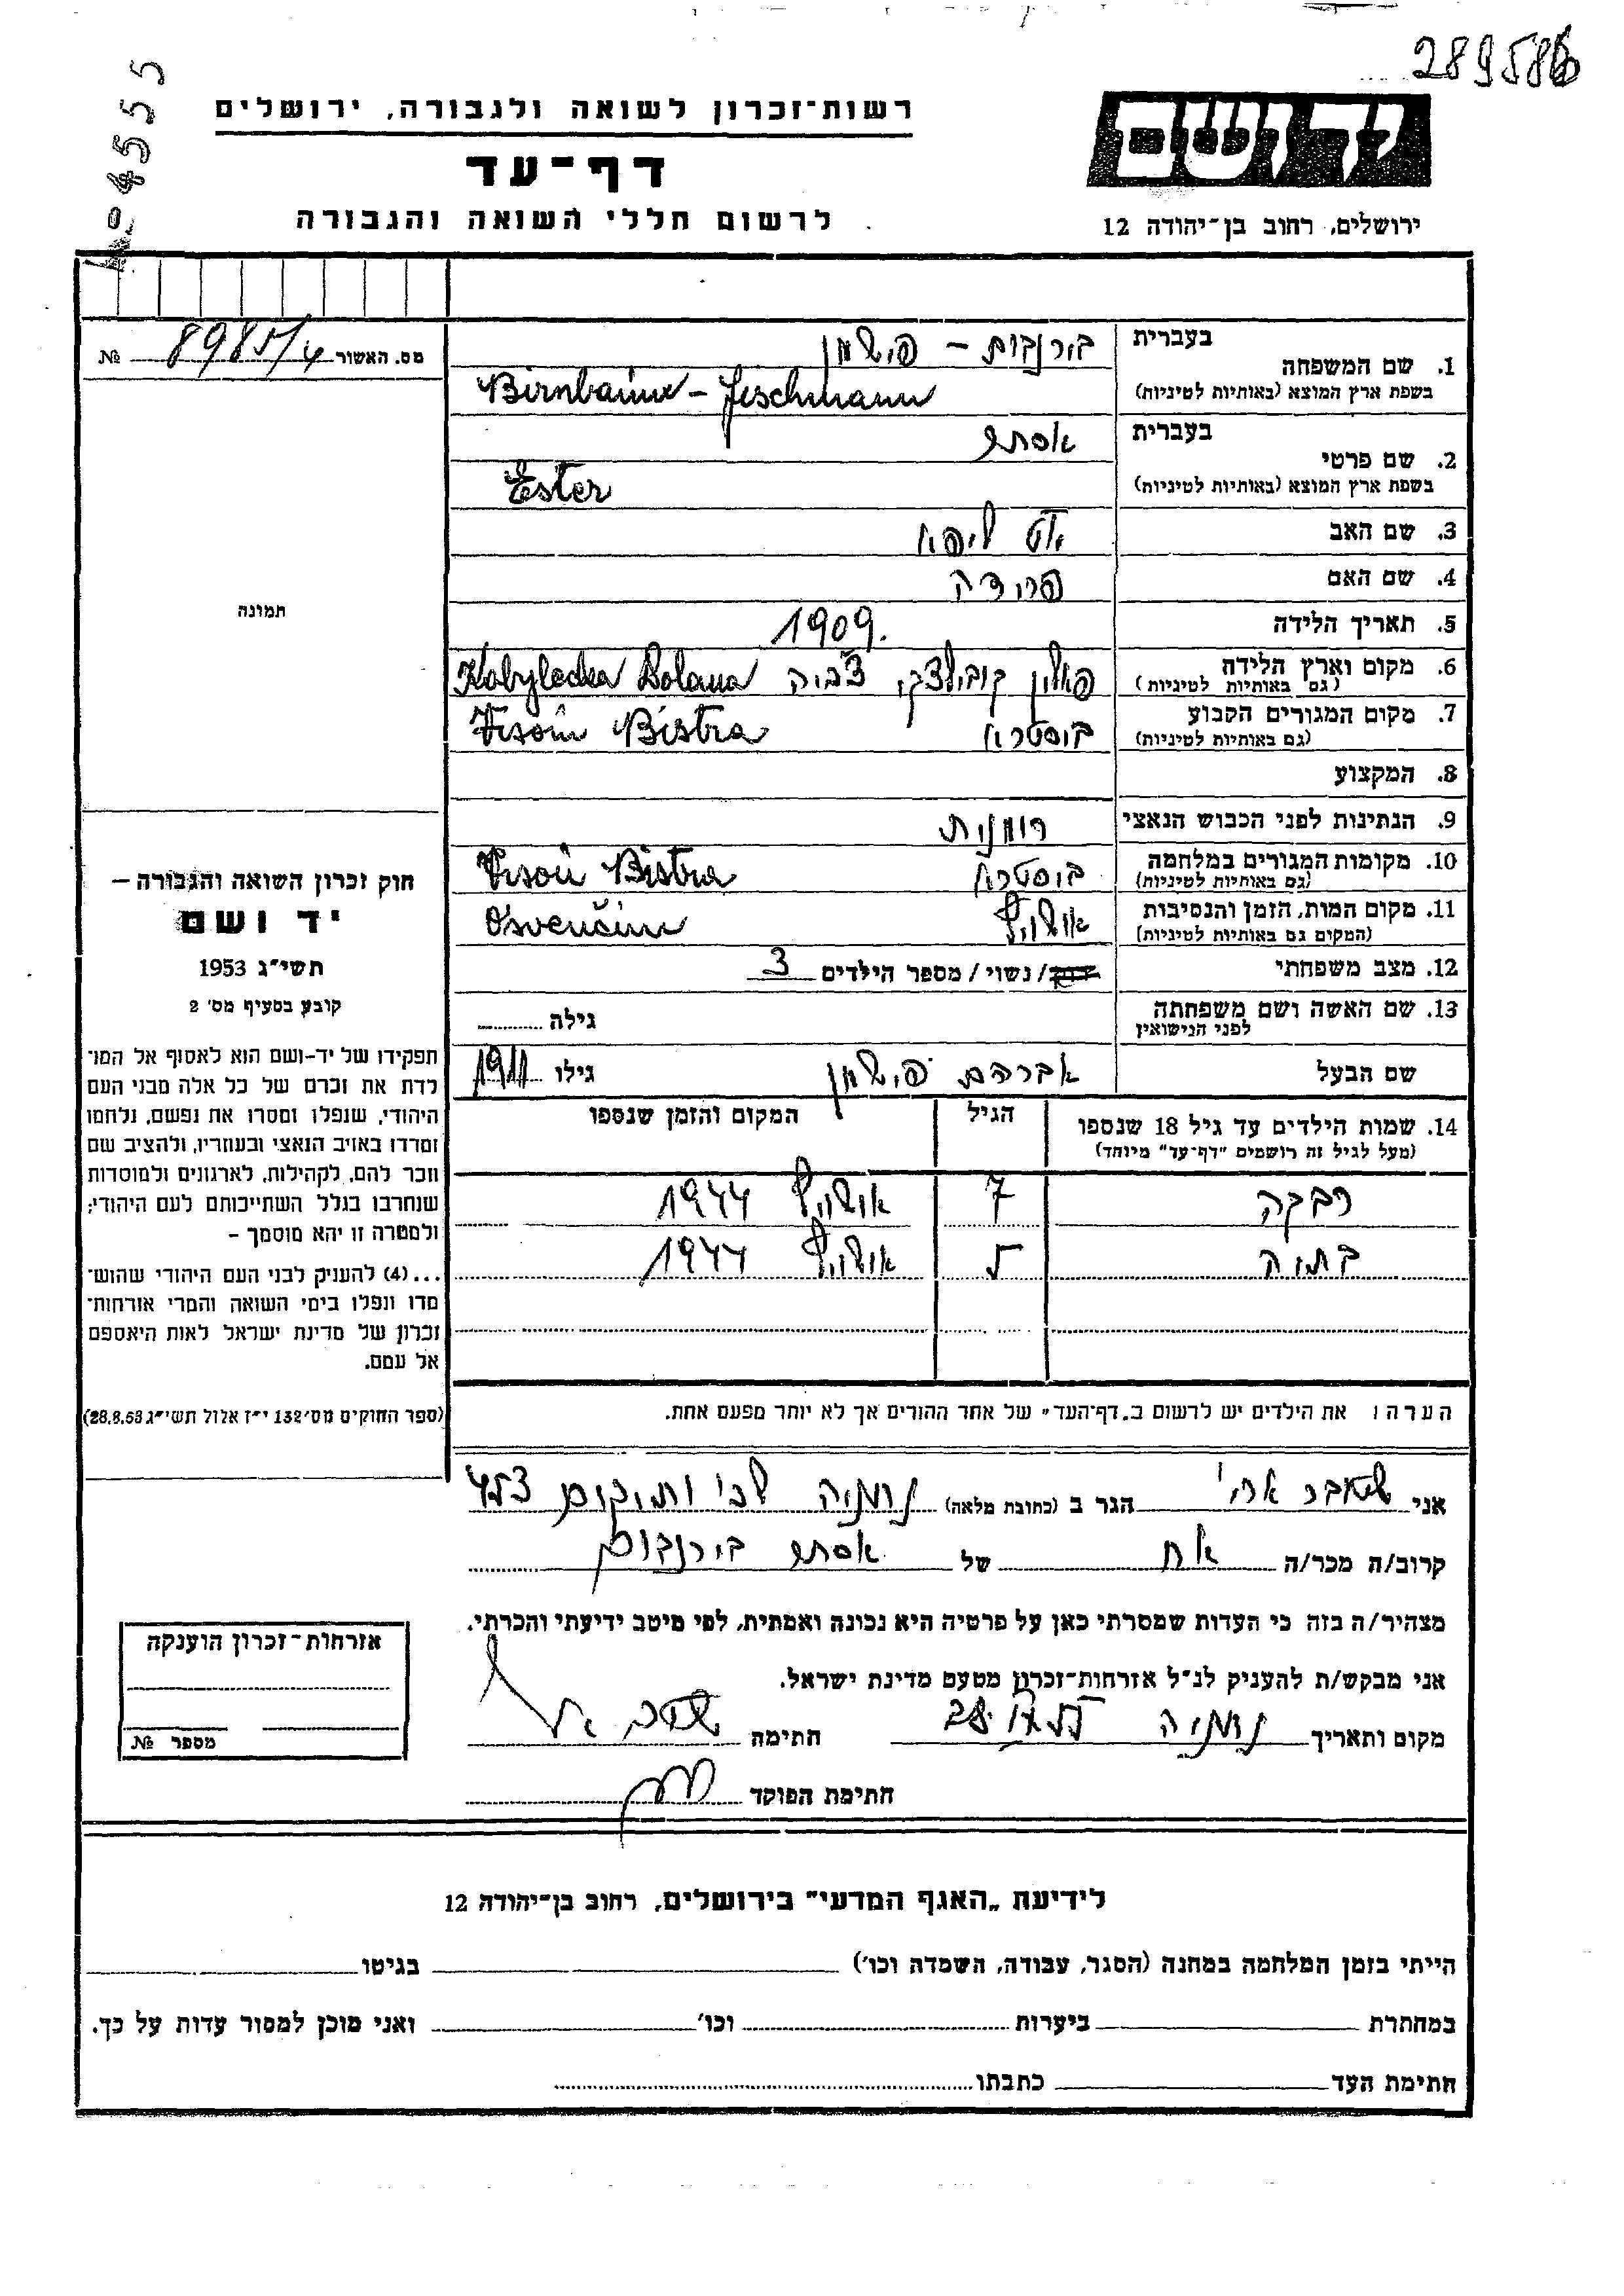 289586
רשות־זכרון לשואה ולגבורה, ירושלים
דף־עד
לרשום חללי השואה והגבורה
יד ושם
ירושלים, רחוב בן־יהודה 12
מס. האשור 8985/4 №
1. שם המשפחה
בעברית
בירנבוים - פישמן
בשפת ארץ המוצא (באותיות לטיניות)
Birnbaum - Fischmann
2. שם פרטי
בעברית
אסתר
בשפת ארץ המוצא (באותיות לטיניות)
Ester
3. שם האב
ליפא
4. שם האם
פרידה
5. תאריך הלידה 1909.
6. מקום וארץ הלידה
(גם באותיות לטיניות)
Kobylecka Polana
7. מקום המגורים הקבוע
(גם באותיות לטיניות)
ביסטרא Bistra
8. המקצוע
9. הנתינות לפני הכבוש הנאצי רומנית
10. מקומות המגורים במלחמה
(גם באותיות לטיניות)
ביסטרא Bistra
11. מקום המות, הזמן והנסיבות
(המקום גם באותיות לטיניות)
אושויץ Osvenčim
12. מצב משפחתי
/ נשוי / מספר הילדים 3
13. שם האשה ושם משפחתה
לפני הנישואין
גילה
שם הבעל אברהם פישמן גילו 1911
14. שמות הילדים עד גיל 18 שנספו
(מעל לגיל זה רושמים "דף־עד" מיוחד)
הגיל
המקום והזמן שנספו
רבקה 7 אושויץ 1944
בתיה 5 אושויץ 1944
הערה: את הילדים יש לרשום ב„דף־העד" של אחד ההורים אך לא יותר מפעם אחת.
תמונה
חוק זכרון השואה והגבורה —
יד ושם
תשי"ג 1953
קובע בסעיף מס' 2
תפקידו של יד־ושם הוא לאסוף אל המו־
לדת את זכרם של כל אלה מבני העם
היהודי, שנפלו ומסרו את נפשם, נלחמו
ומרדו באויב הנאצי ובעוזריו, ולהציב שם
וזכר להם, לקהילות, לארגונים ולמוסדות
שנחרבו בגלל השתייכותם לעם היהודי;
ולמטרה זו יהא מוסמך —
...(4) להעניק לבני העם היהודי שהוש־
מדו ונפלו בימי השואה והמרי אזרחות־
זכרון של מדינת ישראל לאות היאספם
אל עמם.
(ספר החוקים מס' 132 י"ז אלול תשי"ג 28.8.53)
אני הגר ב (כתובת מלאה) נתניה
קרוב/ה מכר/ה אח של אסתר בירנבוים
מצהיר/ה בזה כי העדות שמסרתי כאן על פרטיה היא נכונה ואמתית, לפי מיטב ידיעתי והכרתי.
אני מבקש/ת להעניק לנ"ל אזרחות־זכרון מטעם מדינת ישראל.
מקום ותאריך נתניה חתימה
חתימת הפוקד
אזרחות־זכרון הוענקה
מספר №
לידיעת „האגף המדעי" בירושלים, רחוב בן־יהודה 12
הייתי בזמן המלחמה במחנה (הסגר, עבודה, השמדה וכו') בגיטו
במחתרת ביערות וכו' ואני מוכן למסור עדות על כך.
חתימת העד כתבתו